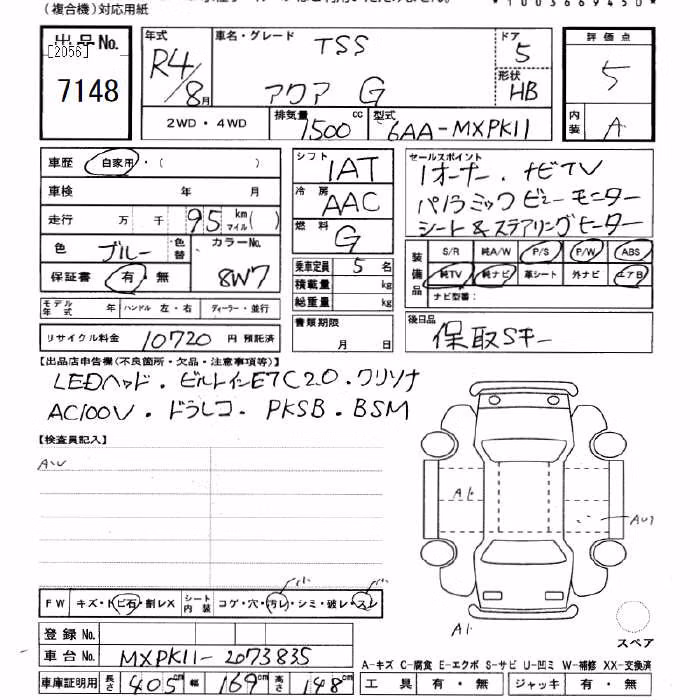 (複合機)対応用紙
*1003669450*
出品No. [2056] 7148
年式 R4/8月
車名・グレード TSS アクア G
ドア 5
形状 HB
評価点 5
内装 A
2WD・4WD
排気量 1500cc
型式 6AA-MXPK11
車歴 自家用・( )
車検 年 月
走行 万 千 95 km マイル( )
色 ブルー 色替 カラーNo. 8W7
保証書 有・無
モデル年式 年 ハンドル 左・右 ディーラー・並行
リサイクル料金 10720 円 預託済
シフト IAT
冷房 AAC
燃料 G
乗車定員 5 名
積載量 kg
総重量 kg
書類期限 月 日
セールスポイント
1オーナー・ナビTV
パノラミックビューモニター
シート&ステアリングヒーター
装備品 S/R 純A/W P/S P/W ABS
純TV 純ナビ 革シート 外ナビ エアB
ナビ型番:
後日品 保取Sキー
【出品店申告欄(不良箇所・欠品・注意事項等)】
LEDヘッド・ビルトインETC2.0・クリソナ
AC100V・ドラレコ・PKSB・BSM
【検査員記入】
A・U
A1
AU1
A1
FW キズ・トビ石・割レX シート内装 コゲ・穴・汚レ・シミ・破レ・スレ
小 小
スペア
登録No.
車台No. MXPK11-2073835
車庫証明用 長さ 405cm 幅 169cm 高さ 148cm
A-キズ C-腐食 E-エクボ S-サビ U-凹ミ W-補修 XX-交換済
工具 有・無 ジャッキ 有・無